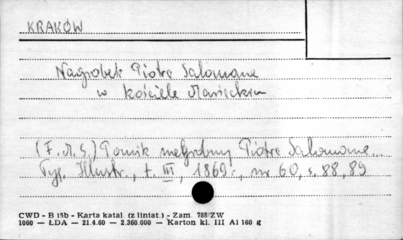 KRAKÓW
Nagrobek Piotra Salomona
w kościele Mariackim
(F. M. S.) Pomnik nagrobny Piotra Salomona...
Tyg. Illustr., t. III, 1869, nr 60, s. 88, 89
CWD - B 15b - Karta katal. (z liniat.) - Zam. 788/ZW
1060 — ŁDA — 21.4.60 — 2.360.000 — Karton kl. III A1 160 g